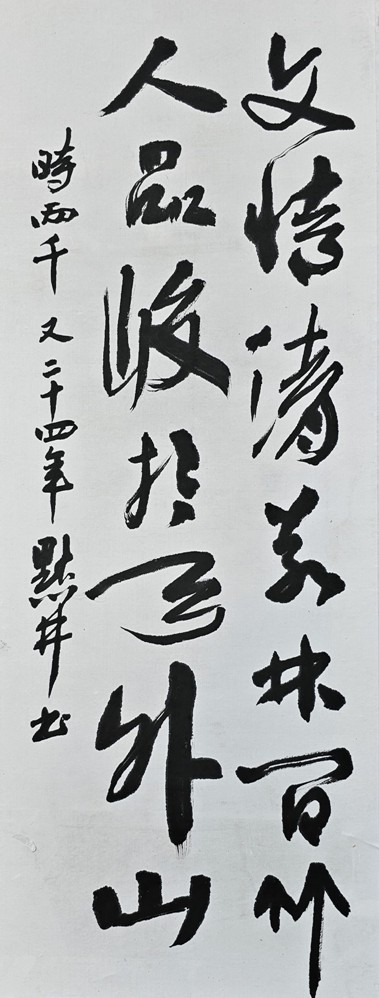 文情清若林間竹
人品峻於天外山
時兩千又二十四年點井書